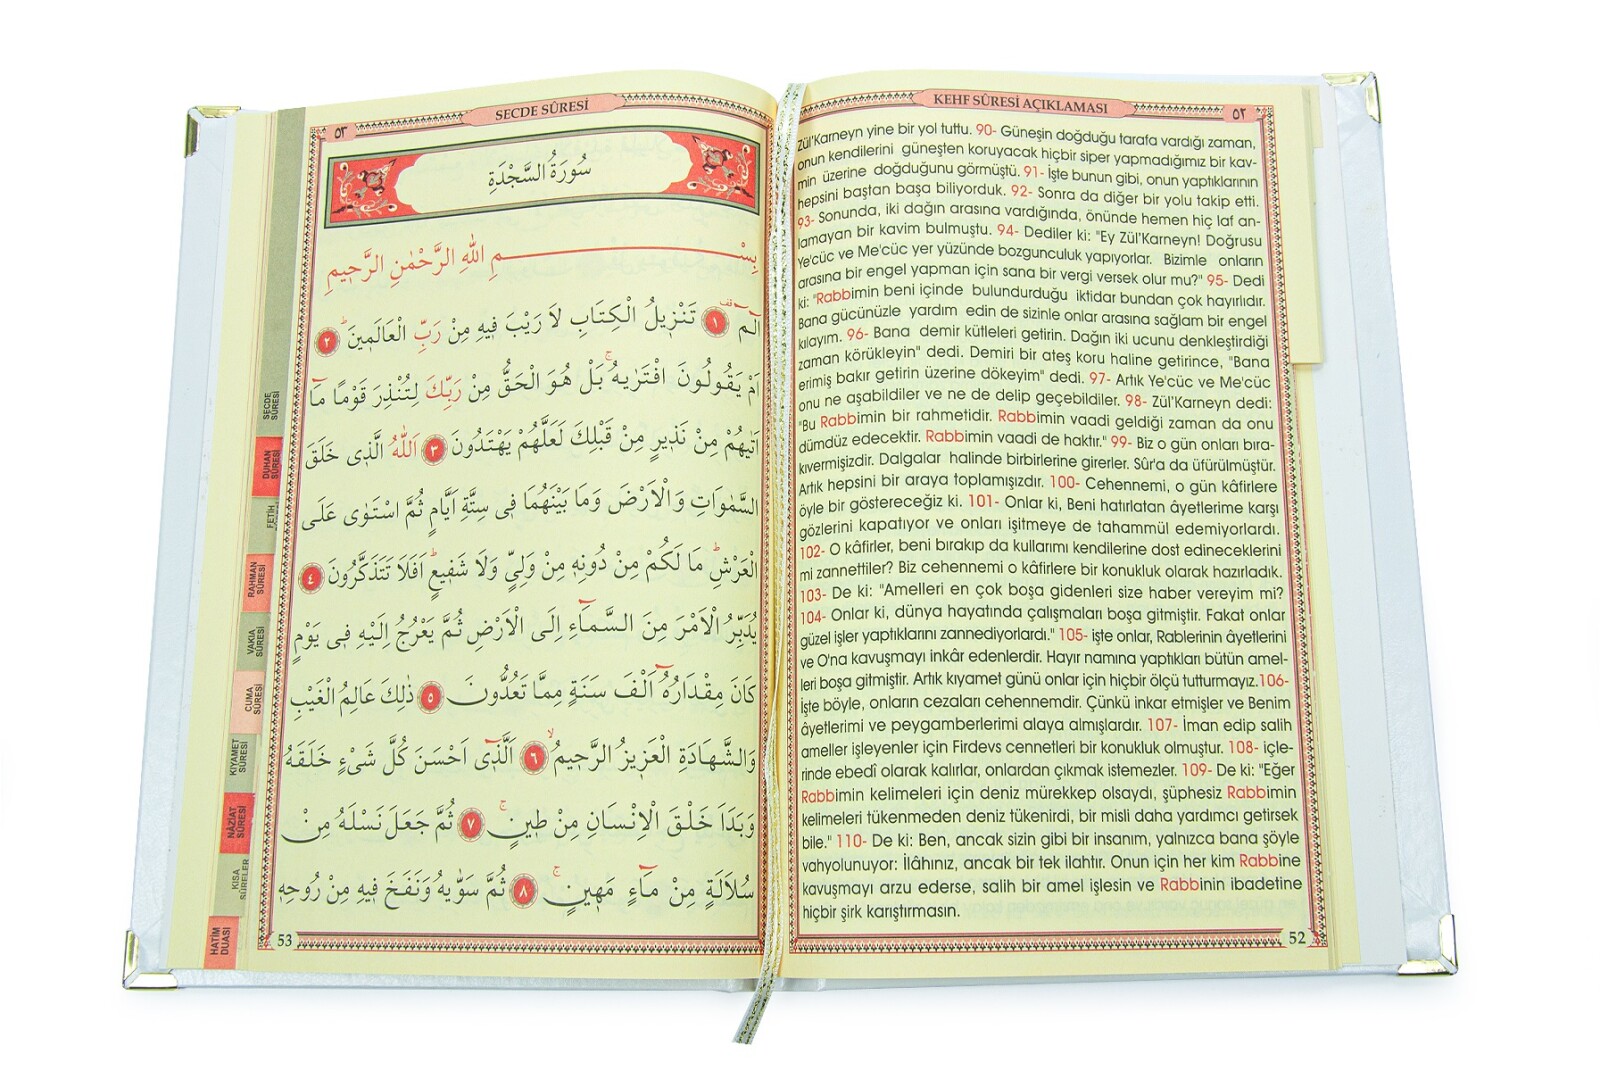 KEHF SÛRESİ AÇIKLAMASI
٥٢
Zül'Karneyn yine bir yol tuttu. 90- Güneşin doğduğu tarafa vardığı zaman,
onun kendilerini güneşten koruyacak hiçbir siper yapmadığımız bir kav-
min üzerine doğduğunu görmüştü. 91- İşte bunun gibi, onun yaptıklarının
hepsini baştan başa biliyorduk. 92- Sonra da diğer bir yolu takip etti.
93- Sonunda, iki dağın arasına vardığında, önünde hemen hiç laf an-
lamayan bir kavim bulmuştu. 94- Dediler ki: "Ey Zül'Karneyn! Doğrusu
Ye'cüc ve Me'cüc yer yüzünde bozgunculuk yapıyorlar. Bizimle onların
arasına bir engel yapman için sana bir vergi versek olur mu?" 95- Dedi
ki: "Rabbimin beni içinde bulundurduğu iktidar bundan çok hayırlıdır.
Bana gücünüzle yardım edin de sizinle onlar arasına sağlam bir engel
kılayım. 96- Bana demir kütleleri getirin. Dağın iki ucunu denkleştirdiği
zaman körükleyin" dedi. Demiri bir ateş koru haline getirince, "Bana
erimiş bakır getirin üzerine dökeyim" dedi. 97- Artık Ye'cüc ve Me'cüc
onu ne aşabildiler ve ne de delip geçebildiler. 98- Zül'Karneyn dedi:
"Bu Rabbimin bir rahmetidir. Rabbimin vaadi geldiği zaman da onu
dümdüz edecektir. Rabbimin vaadi de haktır." 99- Biz o gün onları bıra-
kıvermişizdir. Dalgalar halinde birbirlerine girerler. Sûr'a da üfürülmüştür.
Artık hepsini bir araya toplamışızdır. 100- Cehennemi, o gün kâfirlere
öyle bir göstereceğiz ki. 101- Onlar ki, Beni hatırlatan âyetlerime karşı
gözlerini kapatıyor ve onları işitmeye de tahammül edemiyorlardı.
102- O kâfirler, beni bırakıp da kullarımı kendilerine dost edineceklerini
mi zannettiler? Biz cehennemi o kâfirlere bir konukluk olarak hazırladık.
103- De ki: "Amelleri en çok boşa gidenleri size haber vereyim mi?
104- Onlar ki, dünya hayatında çalışmaları boşa gitmiştir. Fakat onlar
güzel işler yaptıklarını zannediyorlardı." 105- işte onlar, Rablerinin âyetlerini
ve O'na kavuşmayı inkâr edenlerdir. Hayır namına yaptıkları bütün amel-
leri boşa gitmiştir. Artık kıyamet günü onlar için hiçbir ölçü tutturmayız.106-
İşte böyle, onların cezaları cehennemdir. Çünkü inkar etmişler ve Benim
âyetlerimi ve peygamberlerimi alaya almışlardır. 107- İman edip salih
ameller işleyenler için Firdevs cennetleri bir konukluk olmuştur. 108- içle-
rinde ebedî olarak kalırlar, onlardan çıkmak istemezler. 109- De ki: "Eğer
Rabbimin kelimeleri için deniz mürekkep olsaydı, şüphesiz Rabbimin
kelimeleri tükenmeden deniz tükenirdi, bir misli daha yardımcı getirsek
bile." 110- De ki: Ben, ancak sizin gibi bir insanım, yalnızca bana şöyle
vahyolunuyor: İlâhınız, ancak bir tek ilahtır. Onun için her kim Rabbine
kavuşmayı arzu ederse, salih bir amel işlesin ve Rabbinin ibadetine
hiçbir şirk karıştırmasın.
52
٥٣
SECDE SÛRESİ
سُورَةُ السَّجْدَةِ
بِسْمِ اللهِ الرَّحْمٰنِ الرَّحِيمِ
الٓمٓ ۚ ١ تَنْزِيلُ الْكِتَابِ لَا رَيْبَ فِيهِ مِنْ رَبِّ الْعَالَمِينَۜ ٢
اَمْ يَقُولُونَ افْتَرٰيهُۚ بَلْ هُوَ الْحَقُّ مِنْ رَبِّكَ لِتُنْذِرَ قَوْمًا مَٓا
اَتٰيهُمْ مِنْ نَذِيرٍ مِنْ قَبْلِكَ لَعَلَّهُمْ يَهْتَدُونَ ٣ اَللّٰهُ الَّذِى خَلَقَ
السَّمٰوَاتِ وَالْاَرْضَ وَمَا بَيْنَهُمَا فِى سِتَّةِ اَيَّامٍ ثُمَّ اسْتَوٰى عَلَى
الْعَرْشِۜ مَا لَكُمْ مِنْ دُونِهِ مِنْ وَلِيٍّ وَلَا شَفِيعٍۜ اَفَلَا تَتَذَكَّرُونَ ٤
يُدَبِّرُ الْاَمْرَ مِنَ السَّمَٓاءِ اِلَى الْاَرْضِ ثُمَّ يَعْرُجُ اِلَيْهِ فِى يَوْمٍ
كَانَ مِقْدَارُهُٓ اَلْفَ سَنَةٍ مِمَّا تَعُدُّونَ ٥ ذٰلِكَ عَالِمُ الْغَيْبِ
وَالشَّهَادَةِ الْعَزِيزُ الرَّحِيمُۙ ٦ اَلَّذِٓى اَحْسَنَ كُلَّ شَىْءٍ خَلَقَهُ
وَبَدَاَ خَلْقَ الْاِنْسَانِ مِنْ طِينٍۚ ٧ ثُمَّ جَعَلَ نَسْلَهُ مِنْ
سُلَالَةٍ مِنْ مَٓاءٍ مَهِينٍۚ ٨ ثُمَّ سَوّٰيهُ وَنَفَخَ فِيهِ مِنْ رُوحِهِ
53
SECDE
SÛRESİ
DUHAN
SÛRESİ
FETİH
RAHMAN
SÛRESİ
VAKIA
SÛRESİ
CUMA
SÛRESİ
KIYAMET
SÛRESİ
NÂZİAT
SÛRESİ
KISA
SÛRELER
HATİM
DUASI